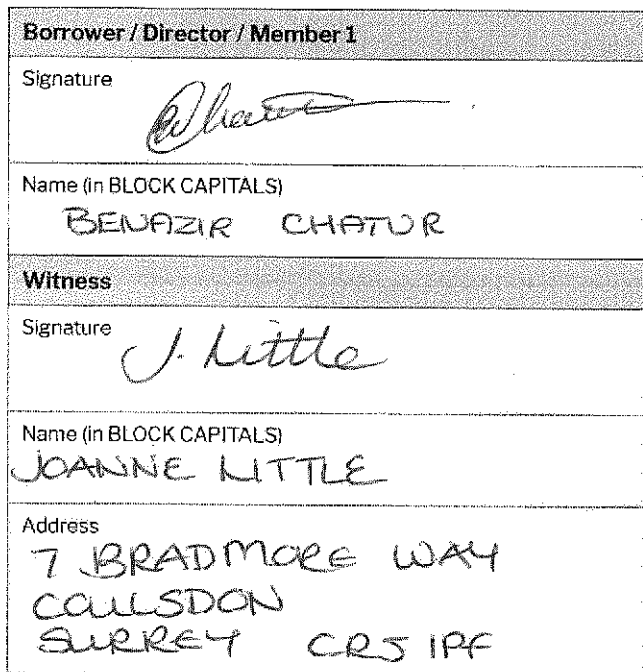 Borrower / Director / Member 1
Signature
Name (in BLOCK CAPITALS)
BENAZIR CHATUR
Witness
Signature
J. Little
Name (in BLOCK CAPITALS)
JOANNE LITTLE
Address
7 BRADMORE WAY
COULSDON
SURREY CR5 1PF